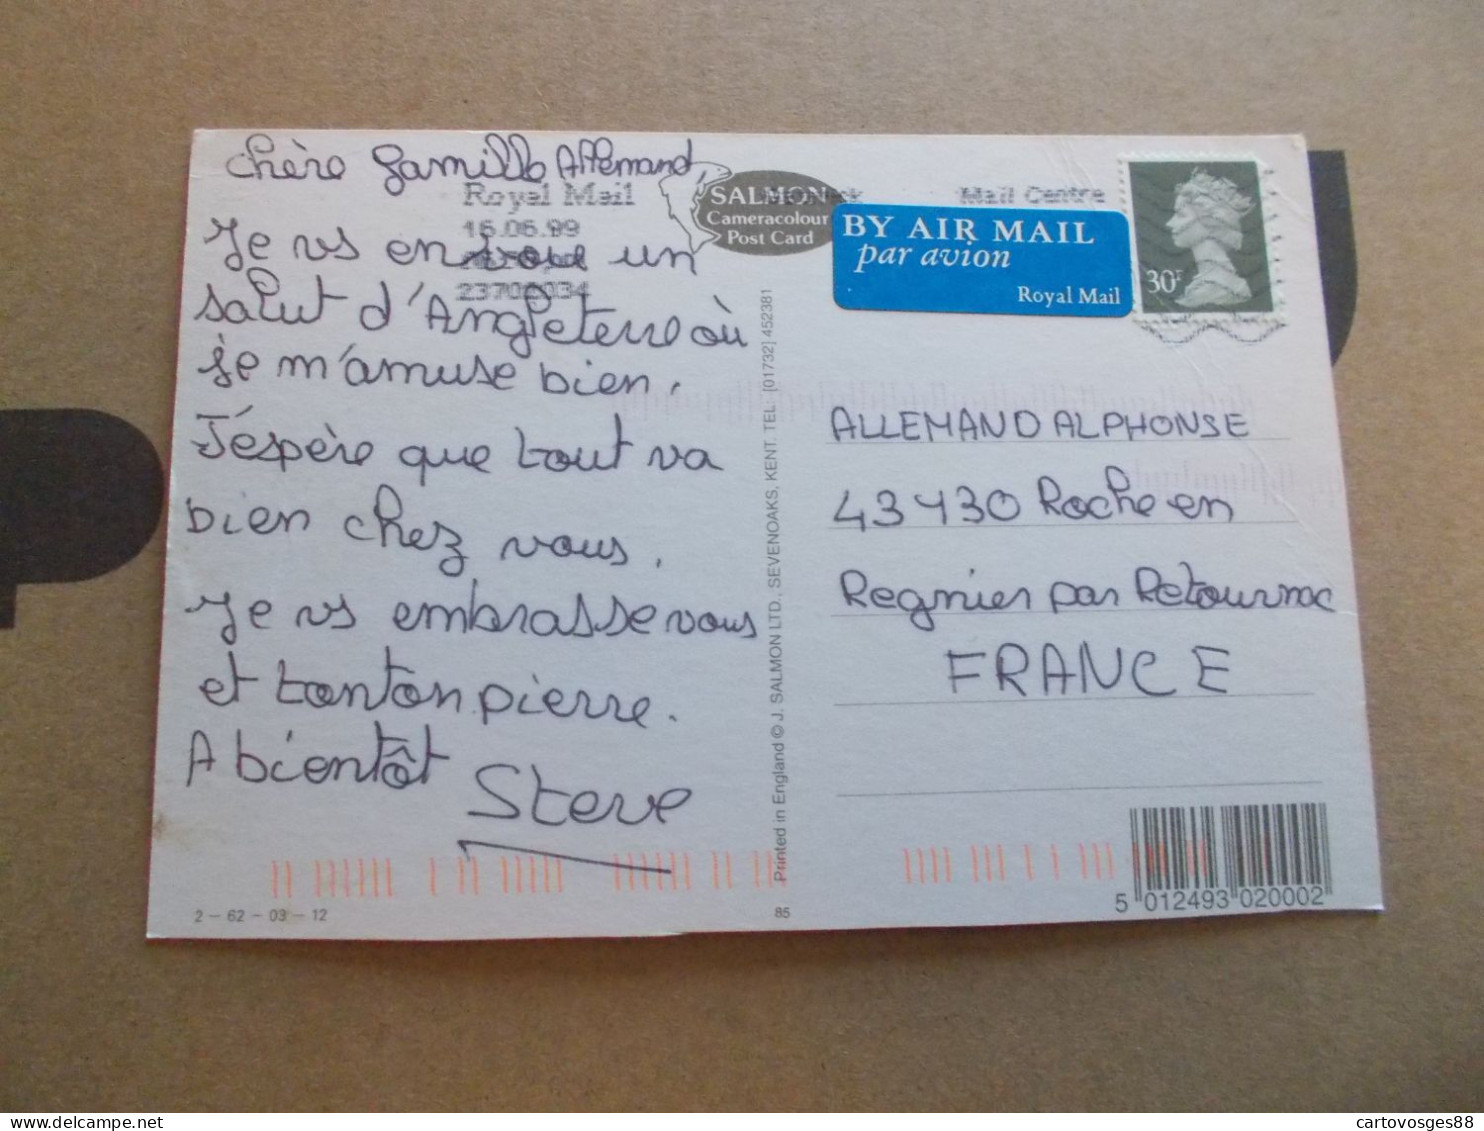 chère famille Allemand,
Je vs envoie un
salut d'Angleterre où
je m'amuse bien.
J'éspère que tout va
bien chez vous.
Je vs embrasse vous
et tonton pierre.
A bientôt
Steve
Royal Mail
16.06.99
23702034
SALMON
Cameracolour
Post Card
Mail Centre
BY AIR MAIL
par avion
Royal Mail
30P
Printed in England © J. SALMON LTD., SEVENOAKS, KENT. TEL: [01732] 452381
ALLEMAND ALPHONSE
43130 Roche en
Regnier par Retournac
FRANCE
2 - 62 - 03 - 12
85
5 012493 020002
cartovosges88